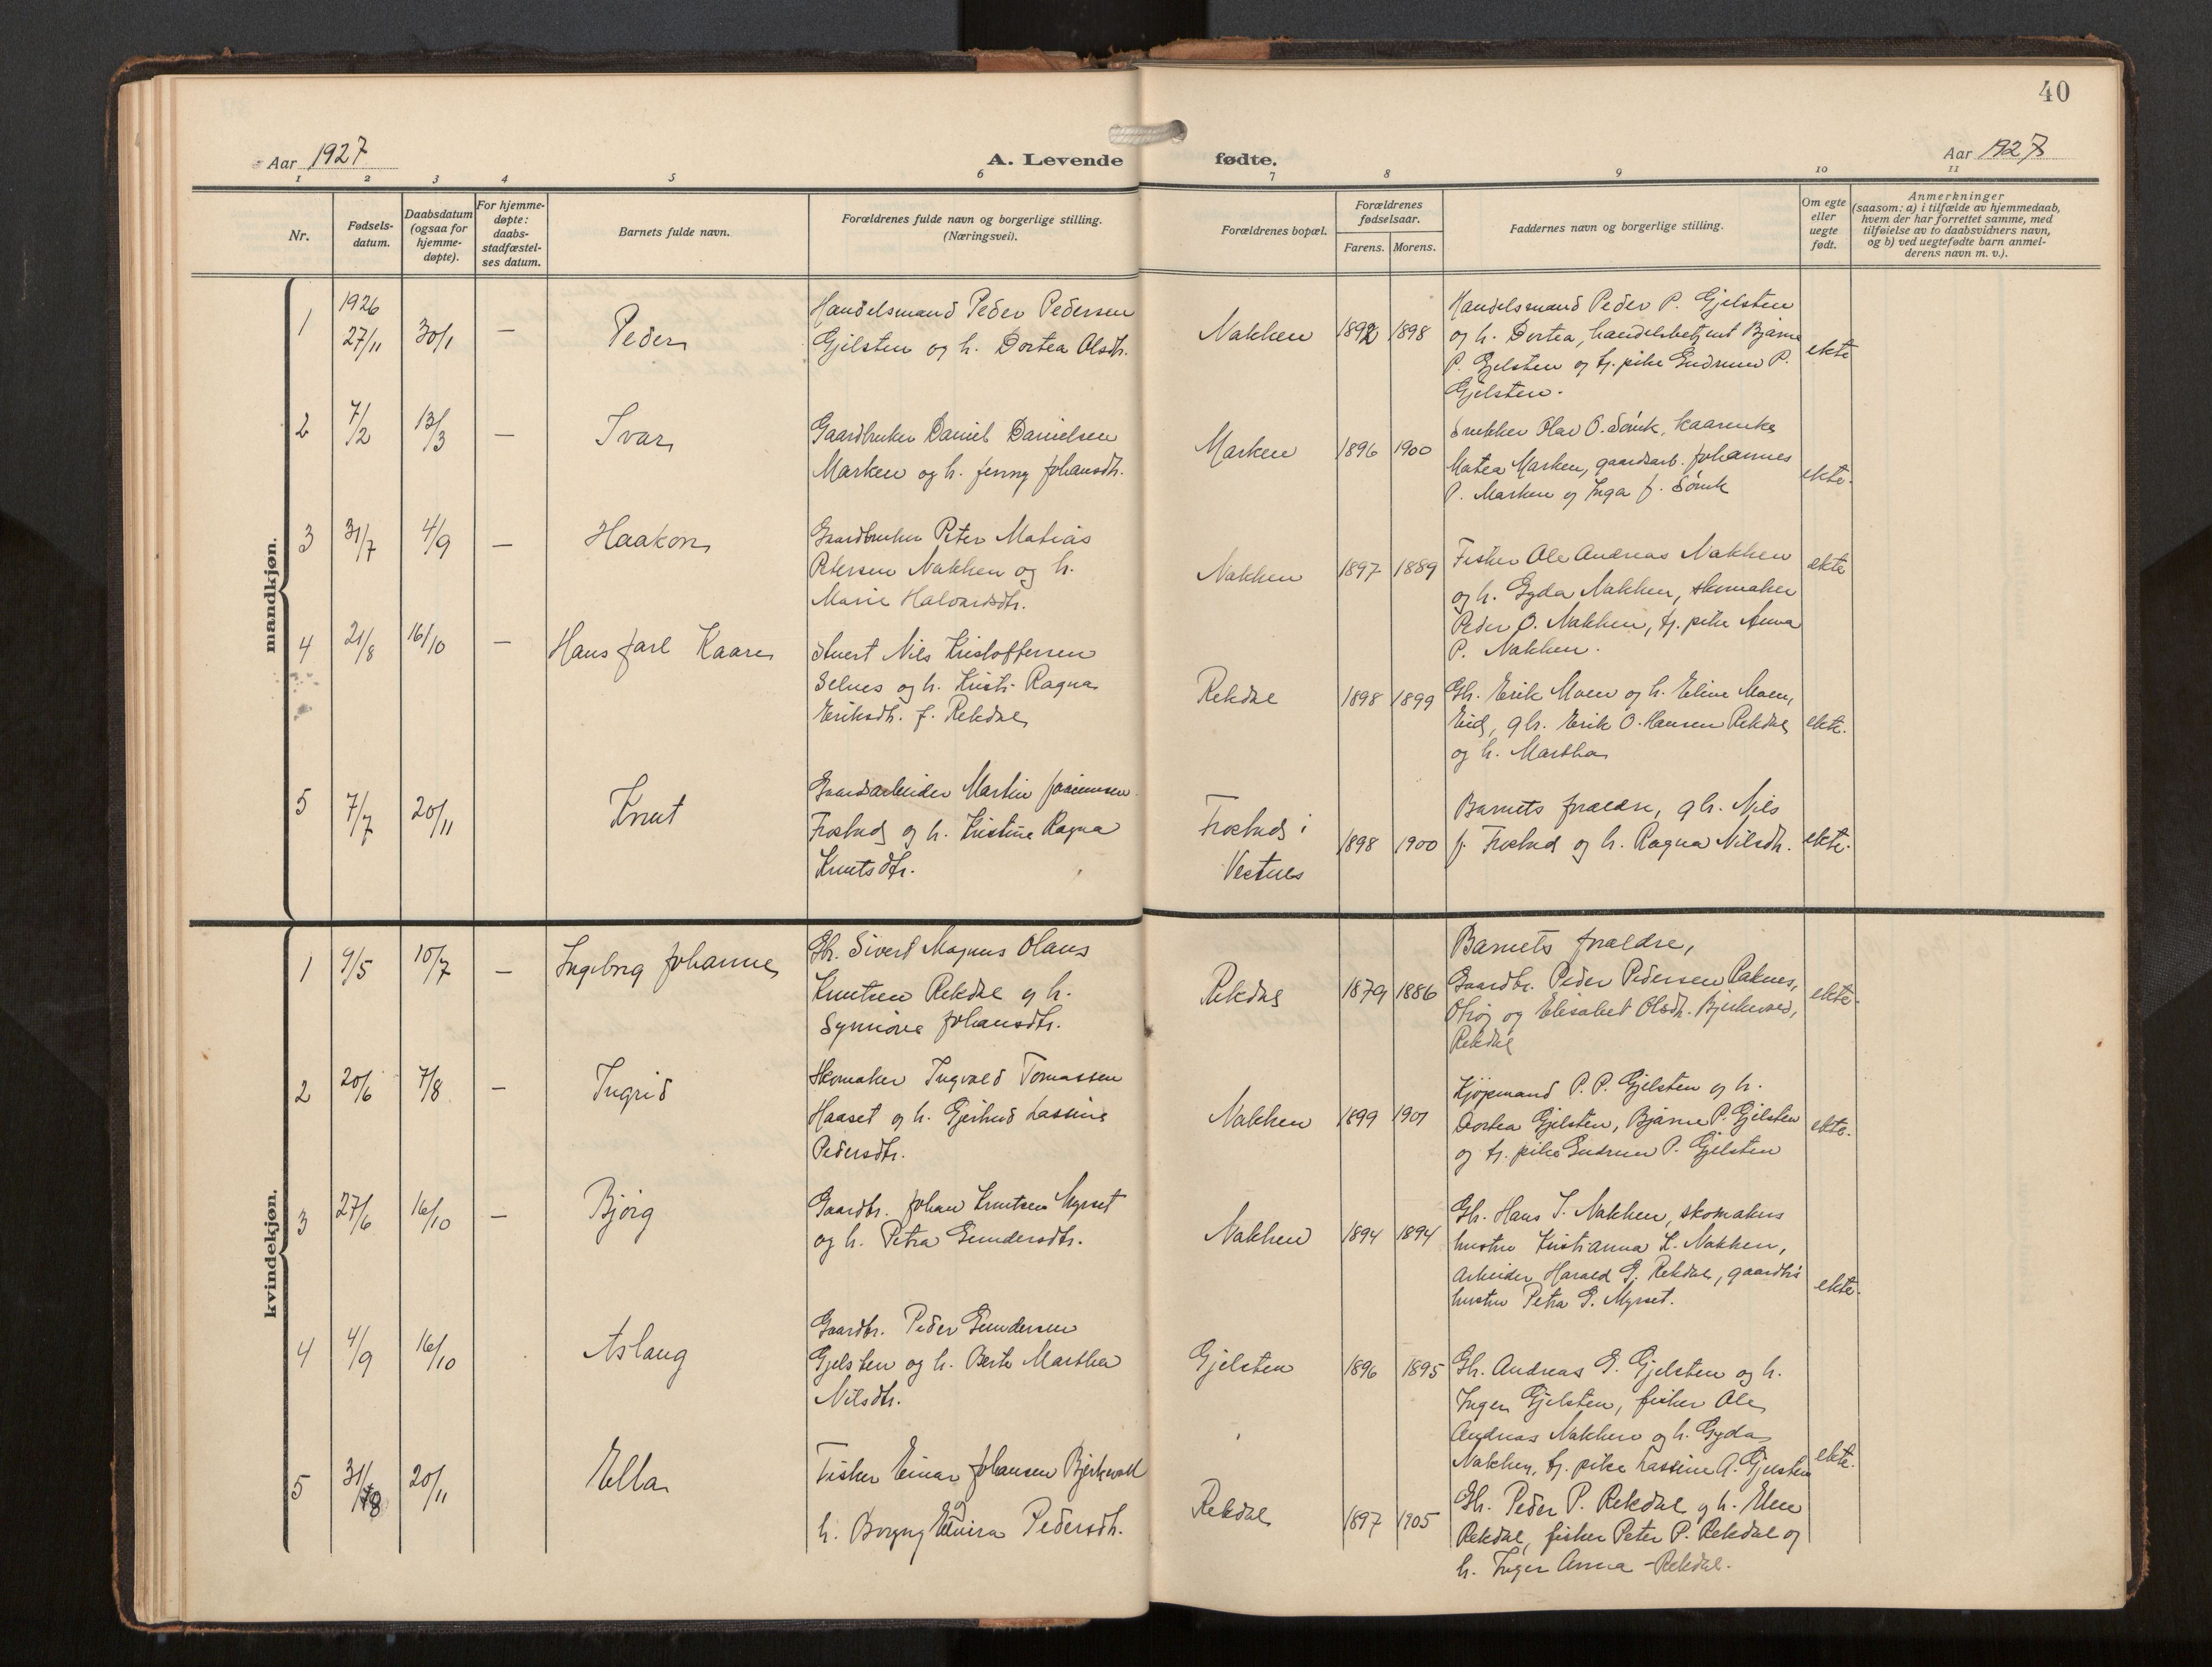 40
Aar 1927
A. Levende fødte.
Aar 1927
1 2 3 4 5 6 7 8 9 10 11
Nr.
Fødsels-
datum.
Daabsdatum
(ogsaa for
hjemme-
døpte).
For hjemme-
døpte:
daabs-
stadfæstel-
ses datum.
Barnets fulde navn.
Forældrenes fulde navn og borgerlige stilling.
(Næringsvei).
Forældrenes bopæl.
Forældrenes
fødselsaar.
Farens. Morens.
Faddernes navn og borgerlige stilling.
Om egte
eller
uegte
født.
Anmerkninger
(saasom: a) i tilfælde av hjemmedaab,
hvem der har forrettet samme, med
tilføielse av to daabsvidners navn,
og b) ved uegtefødte barn anmel-
derens navn m. v.).
mandkjøn.
1
1926
27/11
30/1
—
Peder
Handelsmand Peder Pedersen
Gjelsten og h. Dortea Olsdtr.
Nakken
1892
1898
Handelsmand Peder P. Gjelsten
og h. Dortea, handelsbetjent Bjarne
P. Gjelsten og tj. pike Gudrun P.
Gjelsten.
ekte
2
7/2
13/3
—
Ivar
Gaardbruker Daniel Danielsen
Marken og h. Jenny Johansdtr.
Marken
1896
1900
Snekker Olav O. Sørvik,
Matea Marken, gaardsarb. Johannes
P. Marken og Inga J. Sørvik
ekte.
3
31/7
4/9
—
Haakon
Gaardbruker Peter Matias
Petersen Nakken og h.
Marie Halvardsdtr.
Nakken
1897
1889
Fisker Ole Andreas Nakken
og h. Gyda Nakken, skomaker
Peder O. Nakken, tj. pike Anna
P. Nakken.
ekte
4
21/8
16/10
—
Hans Jarl Kaare
Nils Kristoffersen
Selnes og h. Kristi Ragna
Eriksdtr. f. Rekdal
Rekdal
1898
1899
Gbr. Erik Moen og h. Eline Moen,
Eid, gbr. Erik O. Hansen Rekdal
og h. Martha
ekte.
5
7/7
20/11
Knut
Gaardsarbeider Martin
Frostad og h. Kristine Ragna
Knutsdtr.
Frostad i
Vestnes
1898
1900
Barnets forældre, gbr. Nils
J. Frostad og h. Ragna Nilsdtr.
ekte.
kvindekjøn.
1
9/5
10/7
—
Ingeborg Johanne
Gbr. Sivert Magnus Olaus
Knutsen Rekdal og h.
Synnøve Johansdtr.
Rekdal
1879
1886
Barnets forældre,
Gaardbr. Peder Pedersen Raknes,
Otrøy og Elisabet Olsdtr. Bjerkevold,
Rekdal
ekte.
2
20/6
7/8
—
Ingrid
Skomaker Ingvald Tomassen
Haaset og h. Gjertrud Lassine
Pedersdtr.
Nakken
1899
1901
Kjøpmand P. P. Gjelsten og h.
Dortea Gjelsten, Bjarne P. Gjelsten
og tj. pike Gudrun P. Gjelsten
ekte.
3
27/6
16/10
—
Bjørg
Gaardbr. Johan Knutsen Myrset
og h. Petra Gundersdtr.
Nakken
1894
1894
Gbr. Hans I. Nakken, skomakers
hustru Kristianna L. Nakken,
Arbeider Harald G. Rekdal, gaardbr's
hustru Petra G. Myrset.
ekte.
4
4/9
16/10
Aslaug
Gaardbr. Peder Gundersen
Gjelsten og h. Berte Martha
Nilsdtr.
Gjelsten
1896
1895
Gbr. Andreas G. Gjelsten og h.
Inger Gjelsten, fisker Ole
Andreas Nakken og h. Gyda
Nakken, tj. pike Lassine A. Gjelsten
ekte.
5
31/8
20/11
Ella
Fisker Einar Johansen Bjerkevoll
h. Borgny Elvira Pedersdtr.
Rekdal
1897
1905
Gbr. Peder P. Rekdal og h. Elen
Rekdal, fisker Peter P. Rekdal og
h. Inger Anna Rekdal.